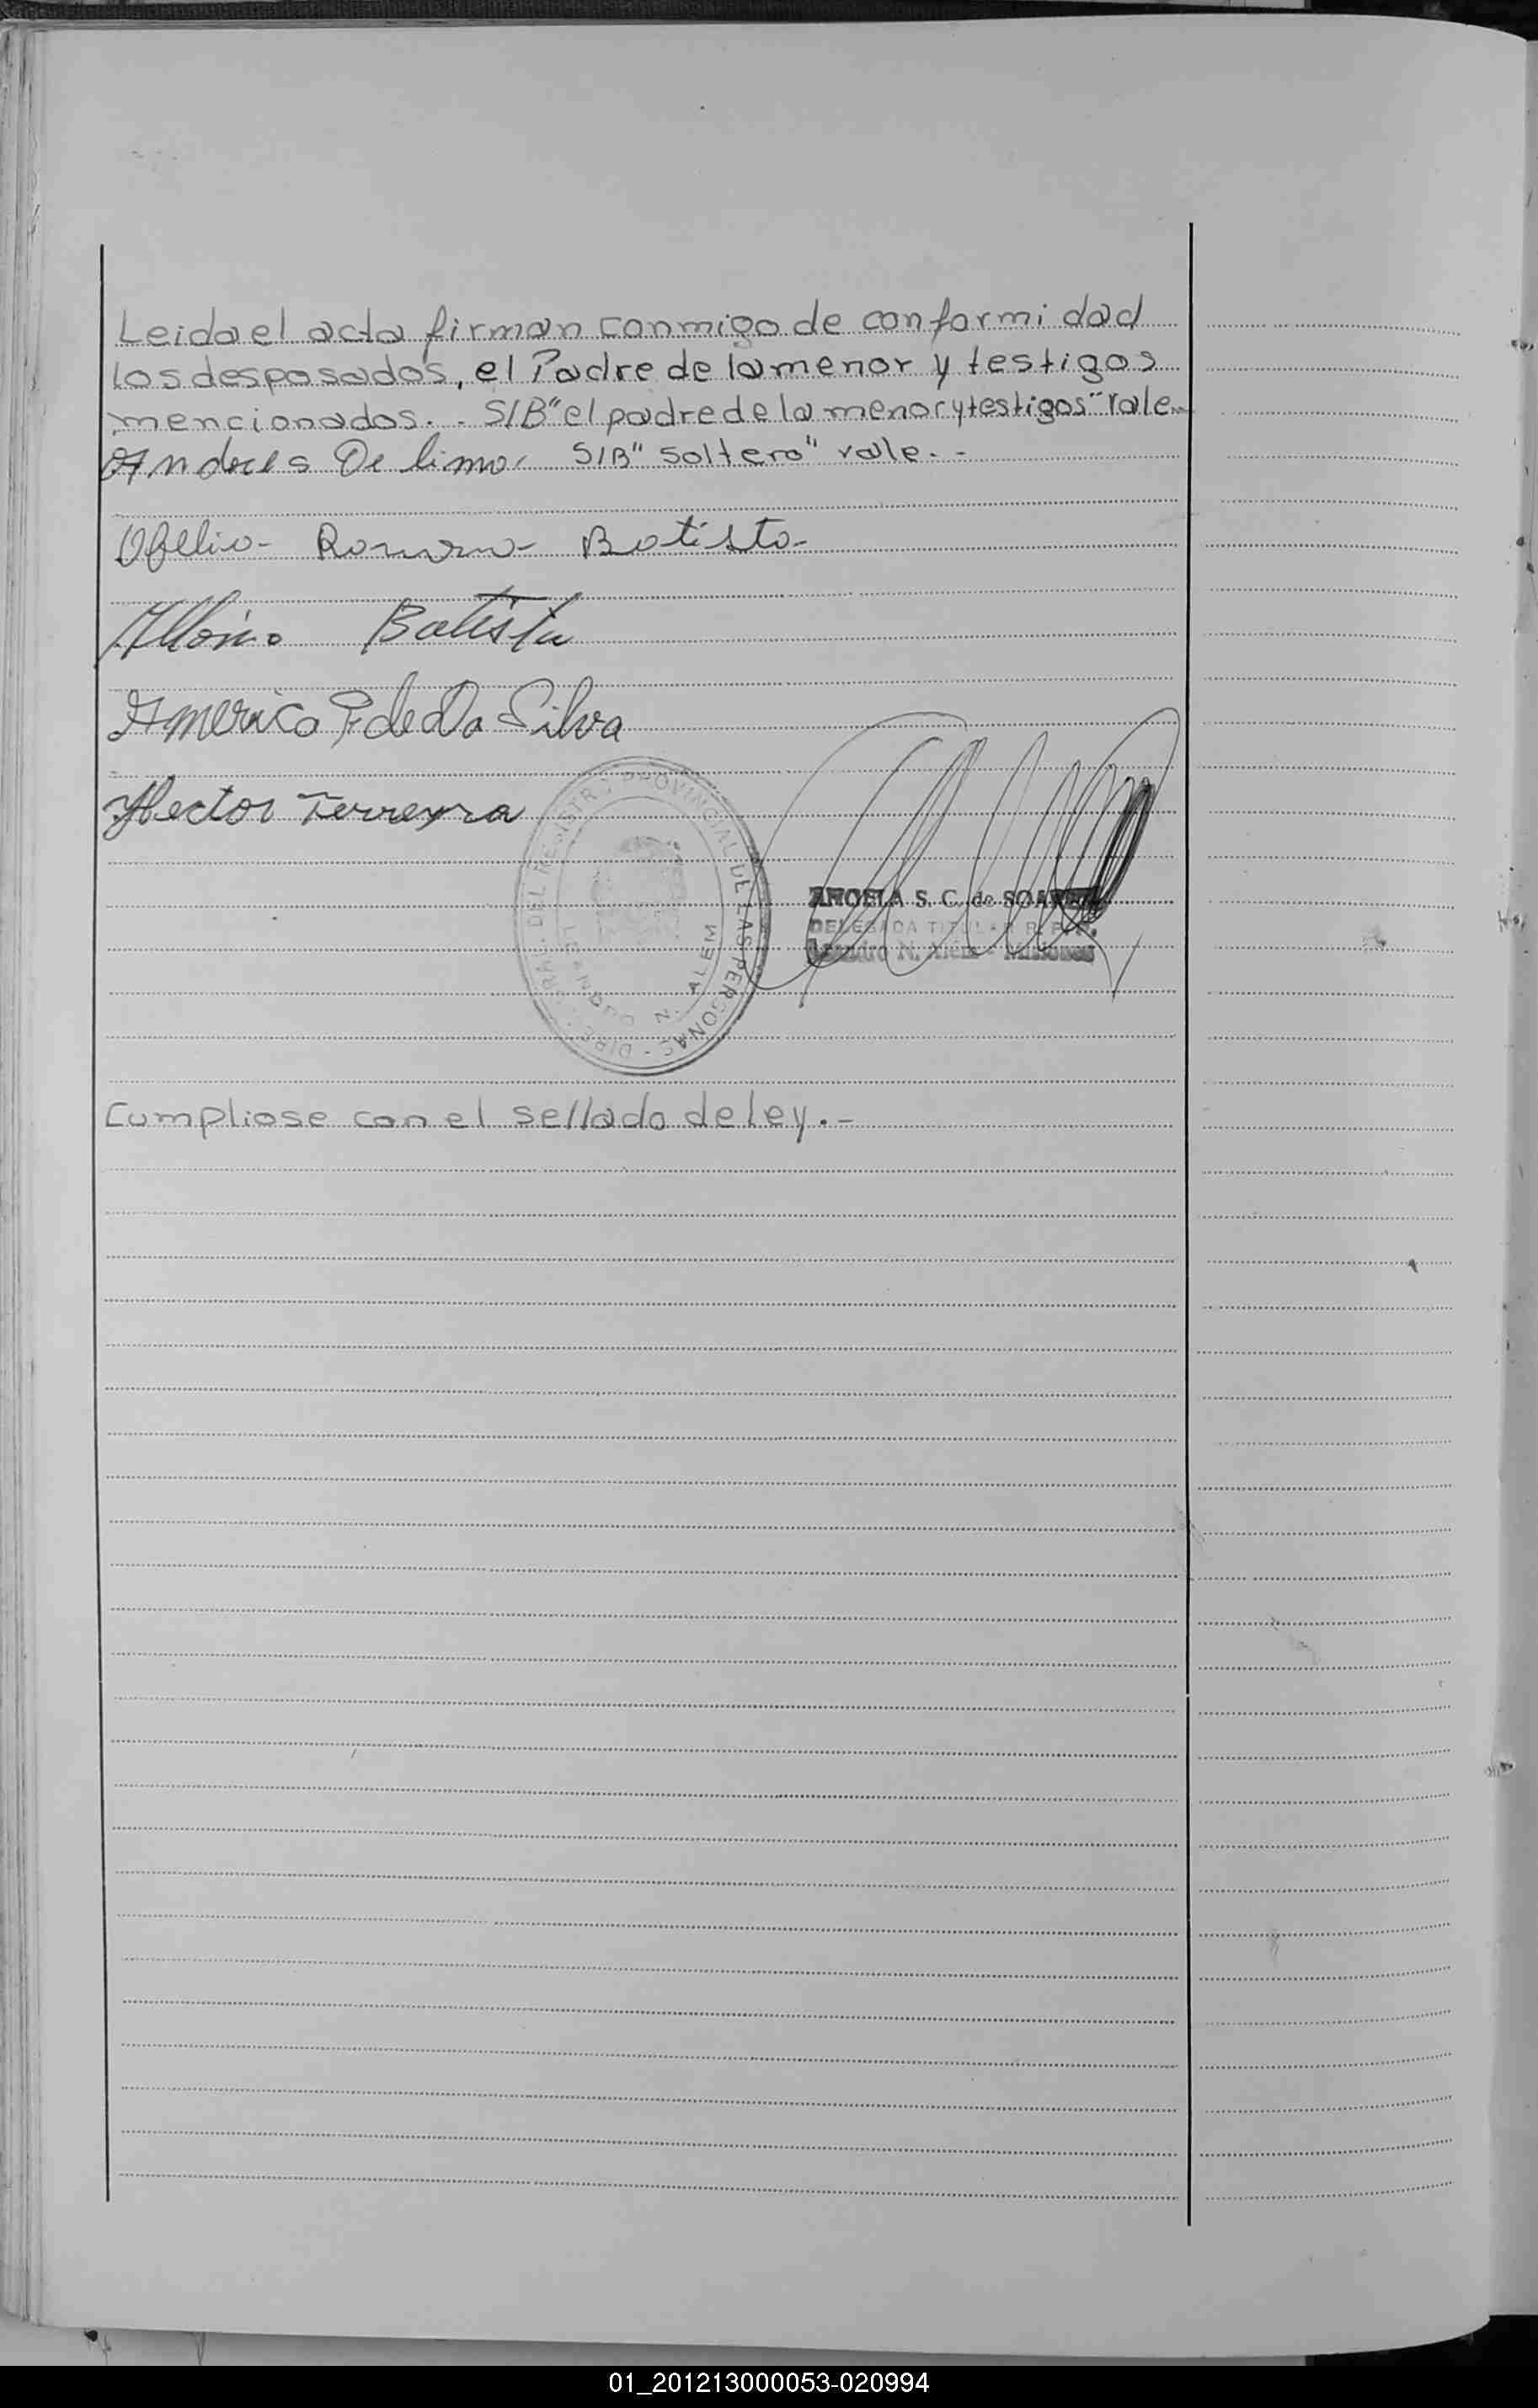 Leida el acta firman conmigo de conformidad
los desposados, el Padre de la menor y testigos
mencionados. - S/B "el padre de la menor y testigos" vale
Andres De lima S/B" Soltero" vale. -
Ofelia Romana Batista
Albino Batista
America F. de Da Silva
Hector Ferreyra
DIREC. GRAL. DEL REGISTRO PROVINCIAL DE LAS PERSONAS -
LEANDRO N. ALEM
ANGELA S. C. de SOAREZ
DELEGADA TITULAR R. P. P.
Leandro N. Além - Misiones
Cumpliose con el sellado de ley. -
01_201213000053-020994